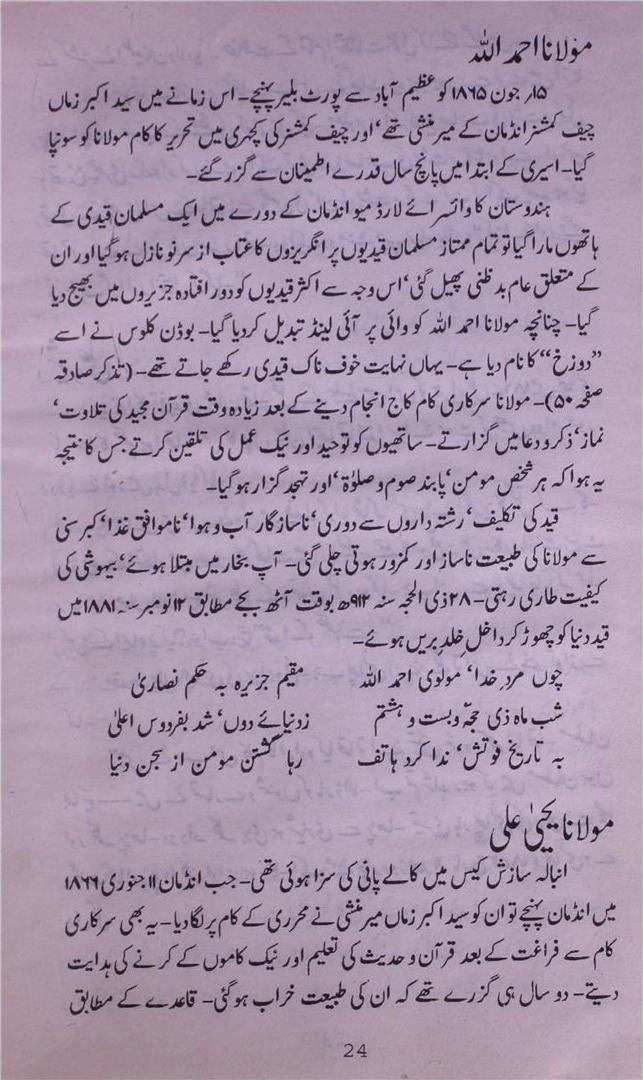 مولانا احمد اللہ
۱۵؍ جون ۱۸۶۵ کو عظیم آباد سے پورٹ بلیر پہنچے۔ اس زمانے میں سید اکبر زماں
چیف کمشنر انڈمان کے میر منشی تھے‘ اور چیف کمشنر کی کچہری میں تحریر کا کام مولانا کو سونپا
گیا۔ اسیری کے ابتدا میں پانچ سال قدرے اطمینان سے گزر گئے۔
ہندوستان کا وائسرائے لارڈ میو انڈمان کے دورے میں ایک مسلمان قیدی کے
ہاتھوں مارا گیا تو تمام ممتاز مسلمان قیدیوں پر انگریزوں کا عتاب از سر نو نازل ہو گیا اور ان
کے متعلق عام بدظنی پھیل گئی‘ اس وجہ سے اکثر قیدیوں کو دور افتادہ جزیروں میں بھیج دیا
گیا۔ چنانچہ مولانا احمد اللہ کو وائی پر آئی لینڈ تبدیل کر دیا گیا۔ بوڈن کلوس نے اسے
”دوزخ“ کا نام دیا ہے۔ یہاں نہایت خوف ناک قیدی رکھے جاتے تھے۔ (تذکر صادقہ
صفحہ ۵۰)۔ مولانا سرکاری کام کاج انجام دینے کے بعد زیادہ وقت قرآن مجید کی تلاوت‘
نماز‘ ذکر و دعا میں گزارتے۔ ساتھیوں کو توحید اور نیک عمل کی تلقین کرتے جس کا نتیجہ
یہ ہوا کہ ہر شخص مومن‘ پابند صوم و صلوٰۃ‘ اور تہجد گزار ہو گیا۔
قید کی تکلیف‘ رشتہ داروں سے دوری‘ ناسازگار آب و ہوا‘ ناموافق غذا‘ کبر سنی
سے مولانا کی طبیعت ناساز اور کمزور ہوتی چلی گئی۔ آپ بخار میں مبتلا ہوئے‘ بیہوشی کی
کیفیت طاری رہتی۔ ۲۸ ذی الحجہ سنہ ۹۱۲ھ بوقت آٹھ بجے مطابق ۱۲ نومبر سنہ ۱۸۸۱ میں
قید دنیا کو چھوڑ کر داخل خلد بریں ہوئے۔
چوں مرد خدا‘ مولوی احمد اللہ مقیم جزیرہ بہ حکم نصاریٰ
شب ماہ ذی حجہ و بست و ہشتم زدنیائے دوں‘ شد بفردوس اعلیٰ
بہ تاریخ فوتش‘ ندا کرد ہاتف رہا گشتن مومن از سجن دنیا
مولانا یحییٰ علی
انبالہ سازش کیس میں کالے پانی کی سزا ہوئی تھی۔ جب انڈمان ۱۱ جنوری ۱۸۶۶
میں انڈمان پہنچے تو ان کو سید اکبر زماں میر منشی نے محرری کے کام پر لگا دیا۔ یہ بھی سرکاری
کام سے فراغت کے بعد قرآن و حدیث کی تعلیم اور نیک کاموں کے کرنے کی ہدایت
دیتے۔ دو سال ہی گزرے تھے کہ ان کی طبیعت خراب ہو گئی۔ قاعدے کے مطابق
24